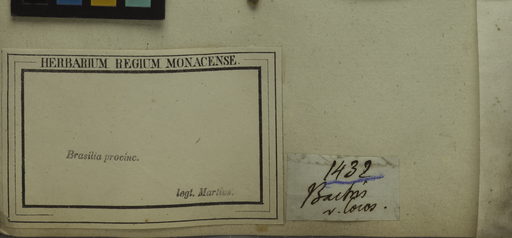 HERBARIUM REGIUM MONACENSE.
Brasilia provinc.
legt. Martius.
1432
Bactris
v. Cocos.